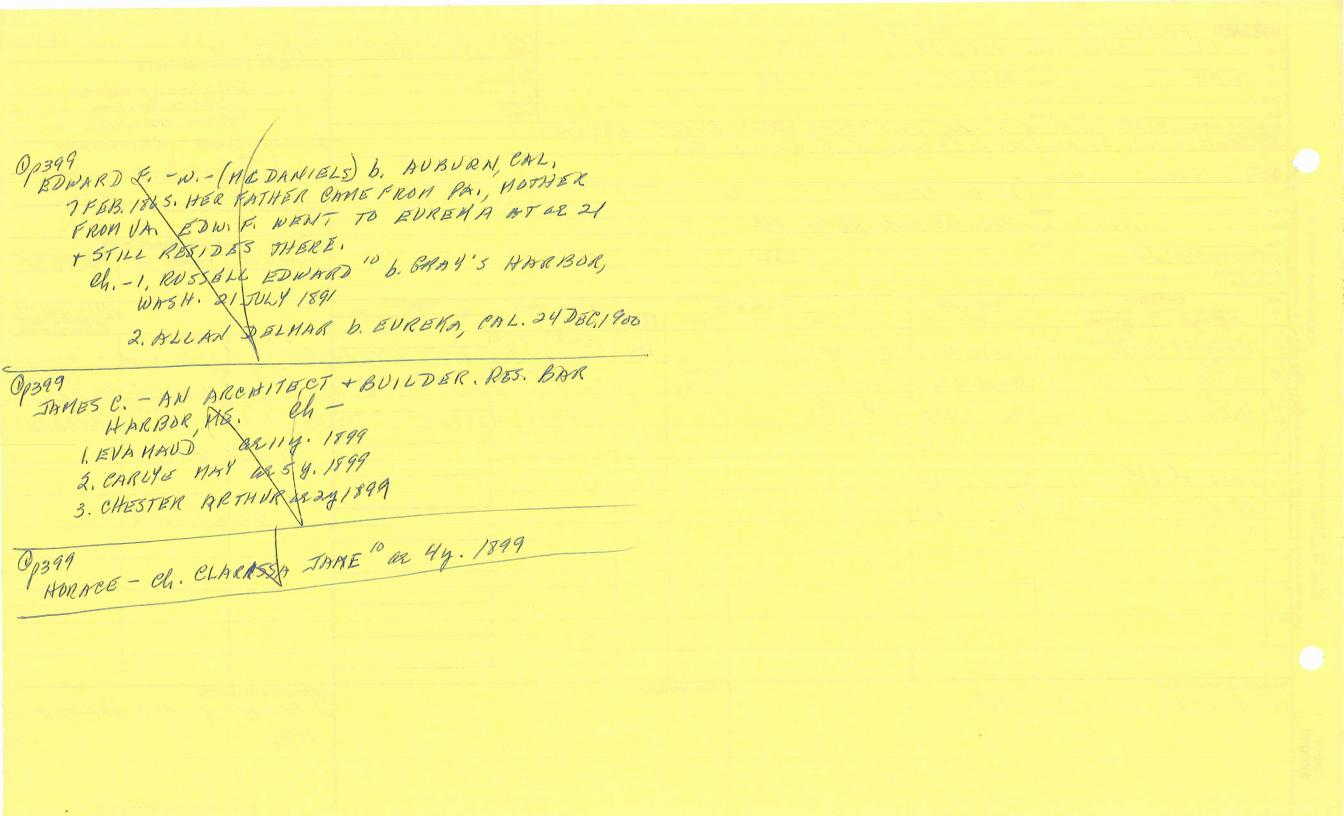 ① p399
EDWARD F. - W. - (McDANIELS) b. AUBURN, CAL.
7 FEB. 1865. HER FATHER CAME FROM PA., MOTHER
FROM VA. EDW. F. WENT TO EUREKA AT ae 21
+ STILL RESIDES THERE.
Ch. - 1. RUSSELL EDWARD 10 b. GRAY'S HARBOR,
WASH. 21 JULY 1891
2. ALLAN DELMAR b. EUREKA, CAL. 24 DEC, 1900
① p399
JAMES C. - AN ARCHITECT + BUILDER. RES. BAR
HARBOR, ME. Ch -
1. EVA MAUD ae 11 y. 1899
2. CARLYE MAY ae 5 y. 1899
3. CHESTER ARTHUR ae 2y 1899
① p399
HORACE - Ch. CLARISSA JANE 10 ae 4y. 1899